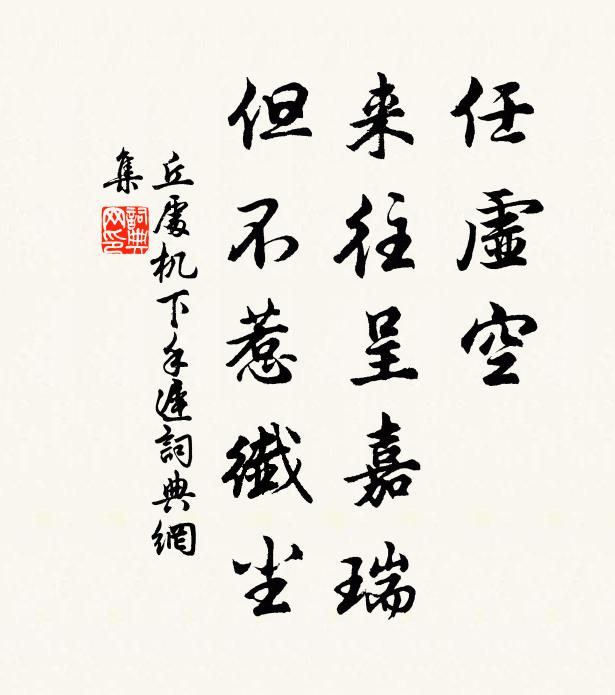 任虛空
来往呈嘉瑞
但不惹纖尘
丘處机下手遲詞典網
集
詞典
网印